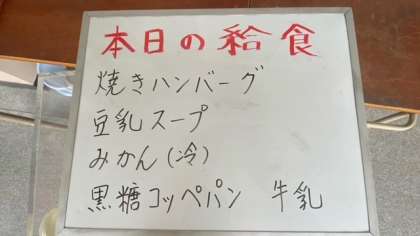 本日の給食
焼きハンバーグ
豆乳スープ
みかん(冷)
黒糖コッペパン 牛乳